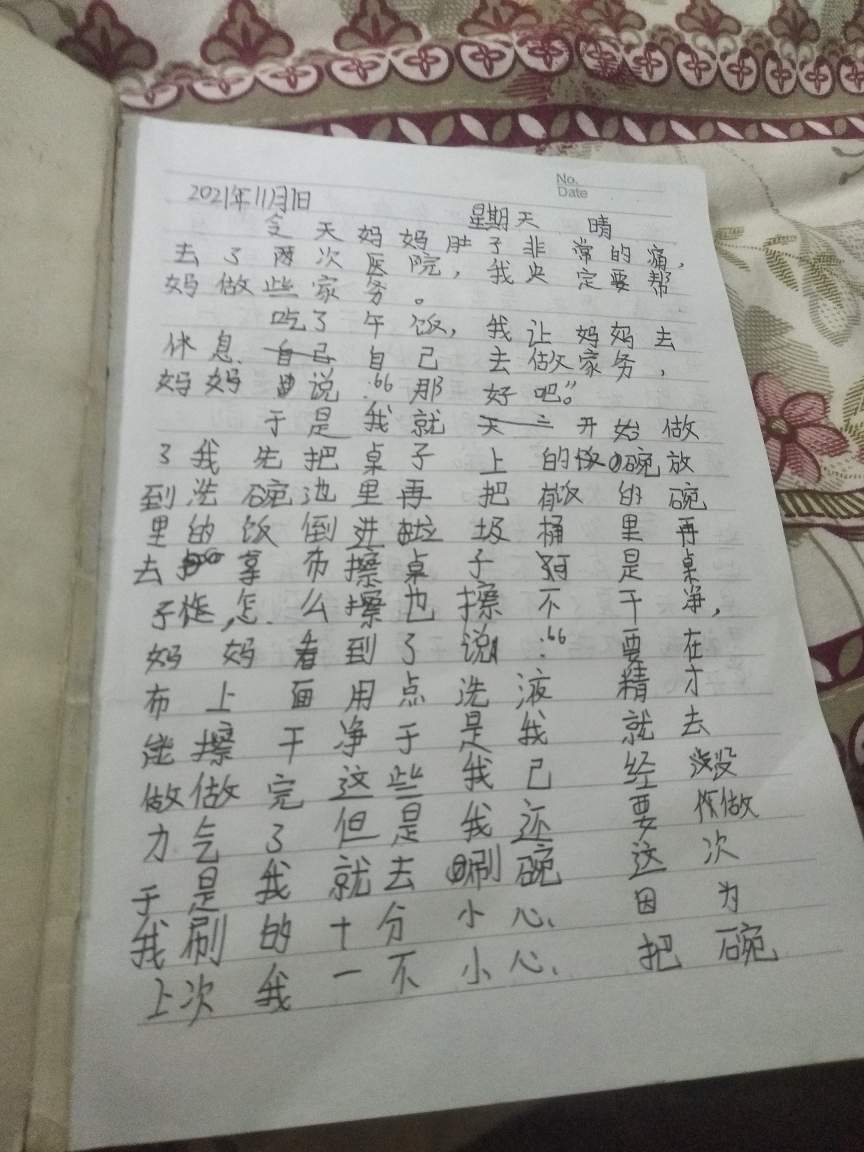 No.
Date
2021年11月1日 星期天 晴
今天妈妈肚子非常的痛，
去了两次医院，我央定要帮
妈做些家务。
吃了午饭，我让妈妈去
休息.自己去做家务，
妈妈说：“那好吧。”
于是我就开始做
了我先把桌子上的饭碗放
到洗碗池里再把有饭的碗
里的饭倒进垃圾桶里再
去拿布擦桌子可是桌
子怎么擦也擦不干净，
妈妈看到了说：“要在
布上面用点洗液精才
能擦干净于是我就去
做做完这些我已经没
力气了但是我还要做
于是我就去刷碗这次
我刷的十分小心因为
上次我一不小心把碗